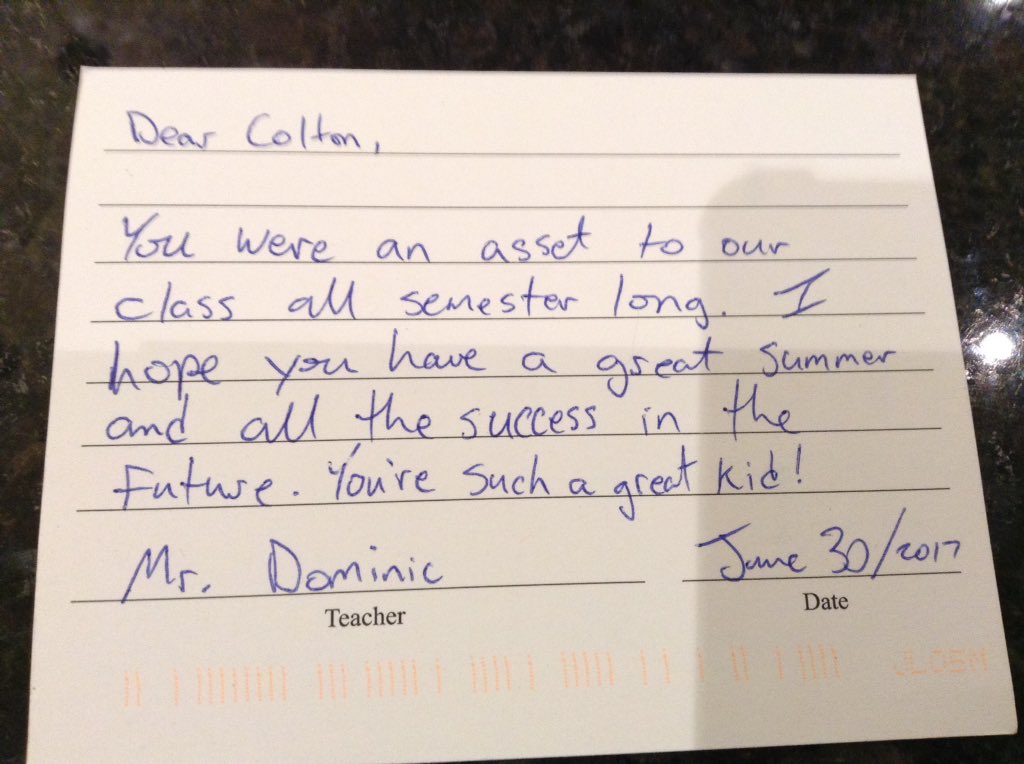 Dear Colton,
You were an asset to our
class all semester long. I
hope you have a great summer
and all the success in the
future. You're such a great kid!
Mr. Dominic June 30/2017
Teacher Date
JLOSM